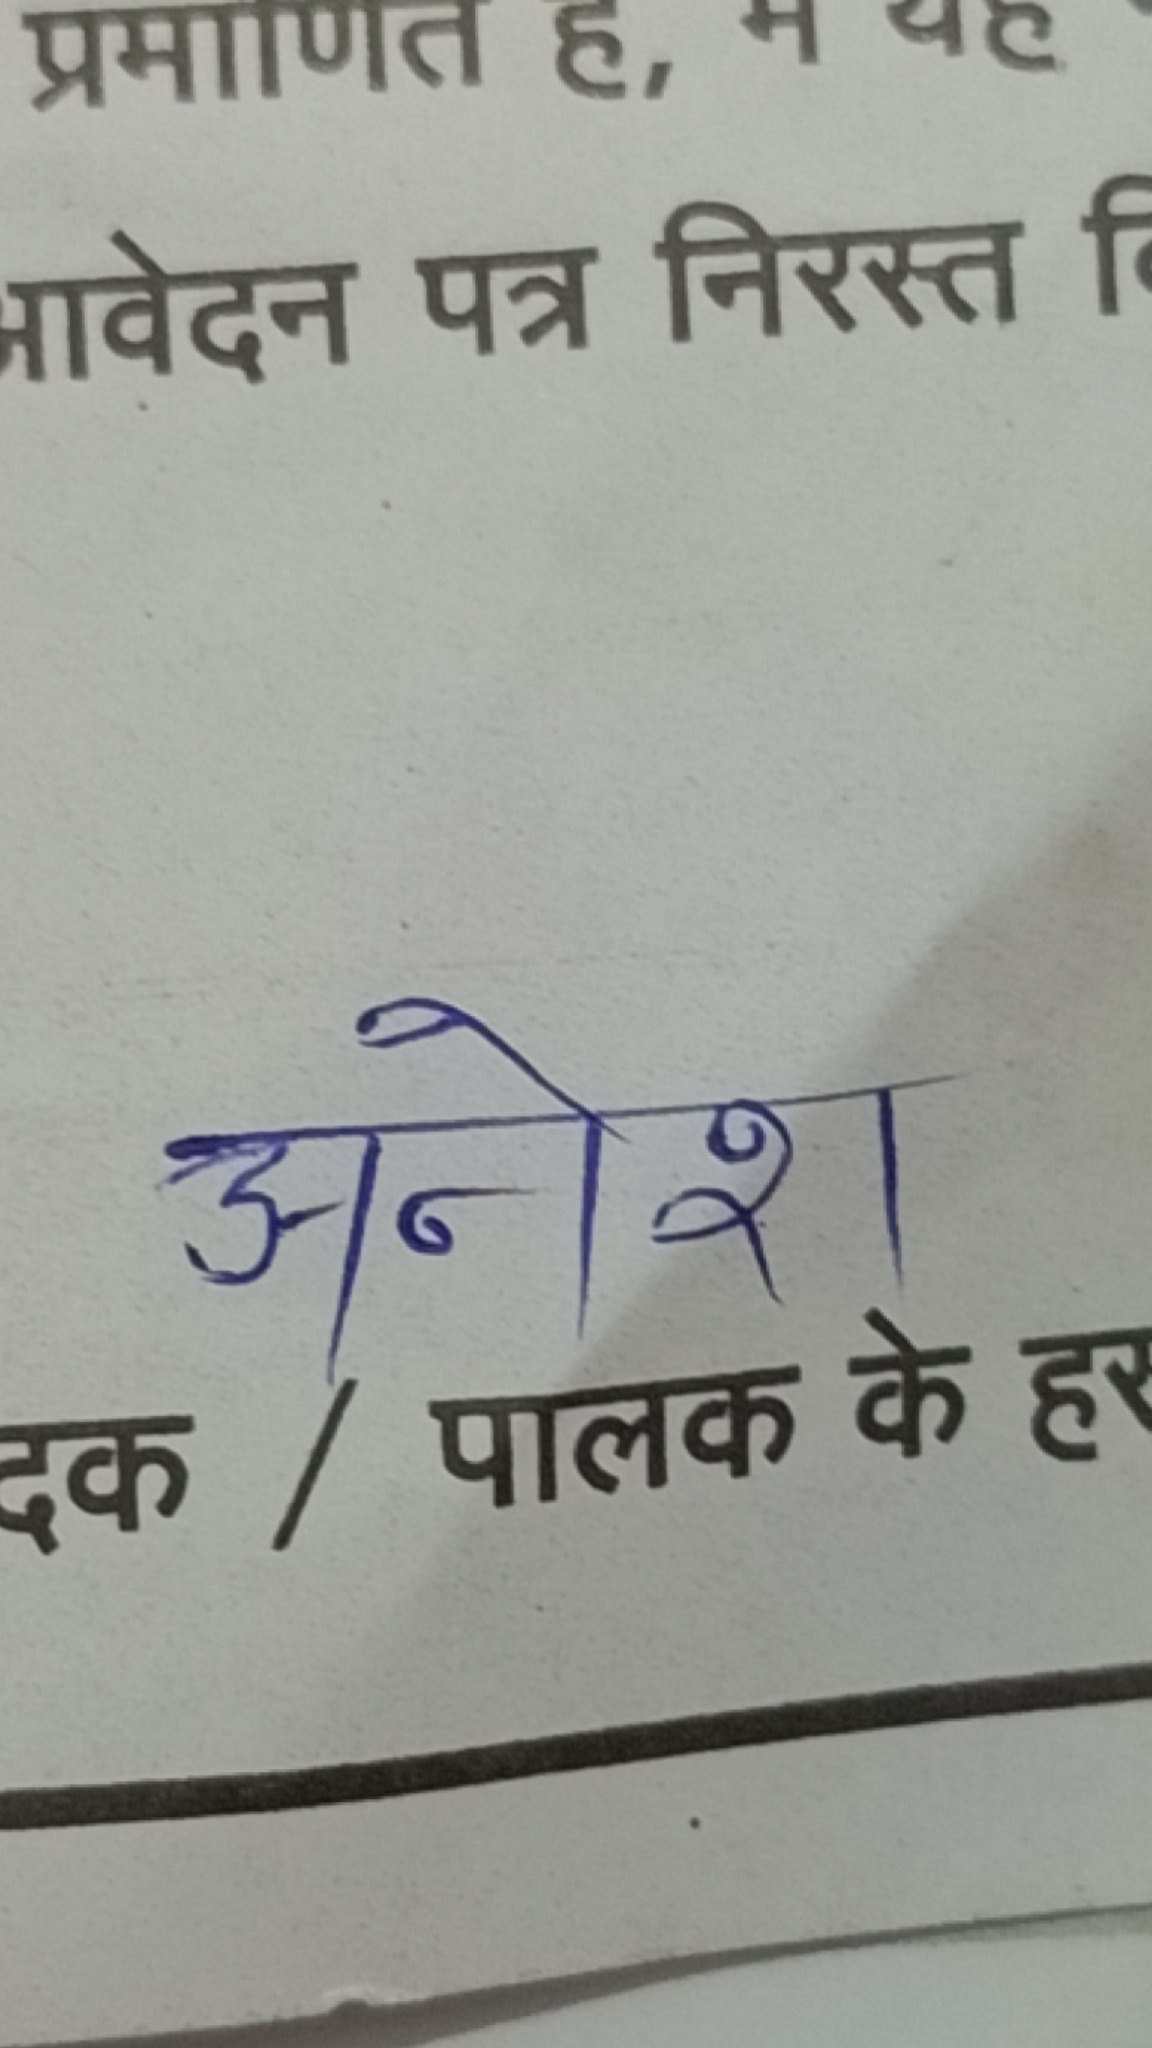 प्रमाणित है, मैं यह
आवेदन पत्र निरस्त
अनेश
/ पालक के